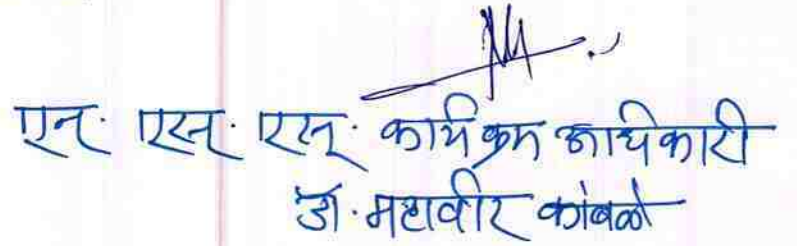 एन. एस. एस. कार्यक्रम अधिकारी
डॉ. महावीर कांबळे